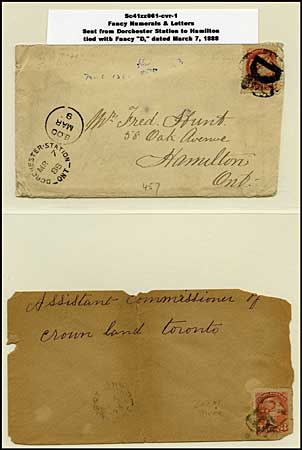 Sc41xx061-cvr-1
Fancy Numerals & Letters
Sent from Dorchester Station to Hamilton
tied with Fancy "D," dated March 7, 1888
9
MAR
8 00
DORCHESTER-STATION
7
MR
88
ONT
Mr. Fred. Hunt
58 Oak Avenue
Hamilton
Ont.
457
Assistant Commissioner of
crown land toronto